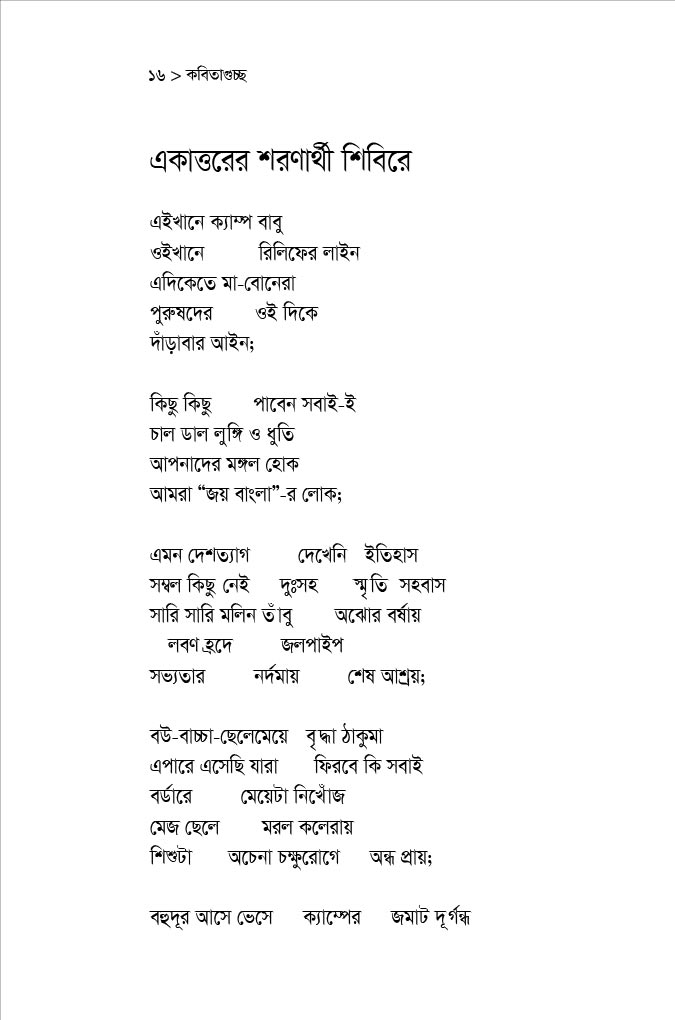 ১৬ > কবিতাগুচ্ছ
একাত্তরের শরণার্থী শিবিরে
এইখানে ক্যাম্প বাবু
ওইখানে রিলিফের লাইন
এদিকেতে মা-বোনেরা
পুরুষদের ওই দিকে
দাঁড়াবার আইন;
কিছু কিছু পাবেন সবাই-ই
চাল ডাল লুঙ্গি ও ধুতি
আপনাদের মঙ্গল হোক
আমরা “জয় বাংলা”-র লোক;
এমন দেশত্যাগ দেখেনি ইতিহাস
সম্বল কিছু নেই দুঃসহ স্মৃতি সহবাস
সারি সারি মলিন তাঁবু অঝোর বর্ষায়
লবণ হ্রদে জলপাইপ
সভ্যতার নর্দমায় শেষ আশ্রয়;
বউ-বাচ্চা-ছেলেমেয়ে বৃদ্ধা ঠাকুমা
এপারে এসেছি যারা ফিরবে কি সবাই
বর্ডারে মেয়েটা নিখোঁজ
মেজ ছেলে মরল কলেরায়
শিশুটা অচেনা চক্ষুরোগে অন্ধ প্রায়;
বহুদূর আসে ভেসে ক্যাম্পের জমাট দূর্গন্ধ